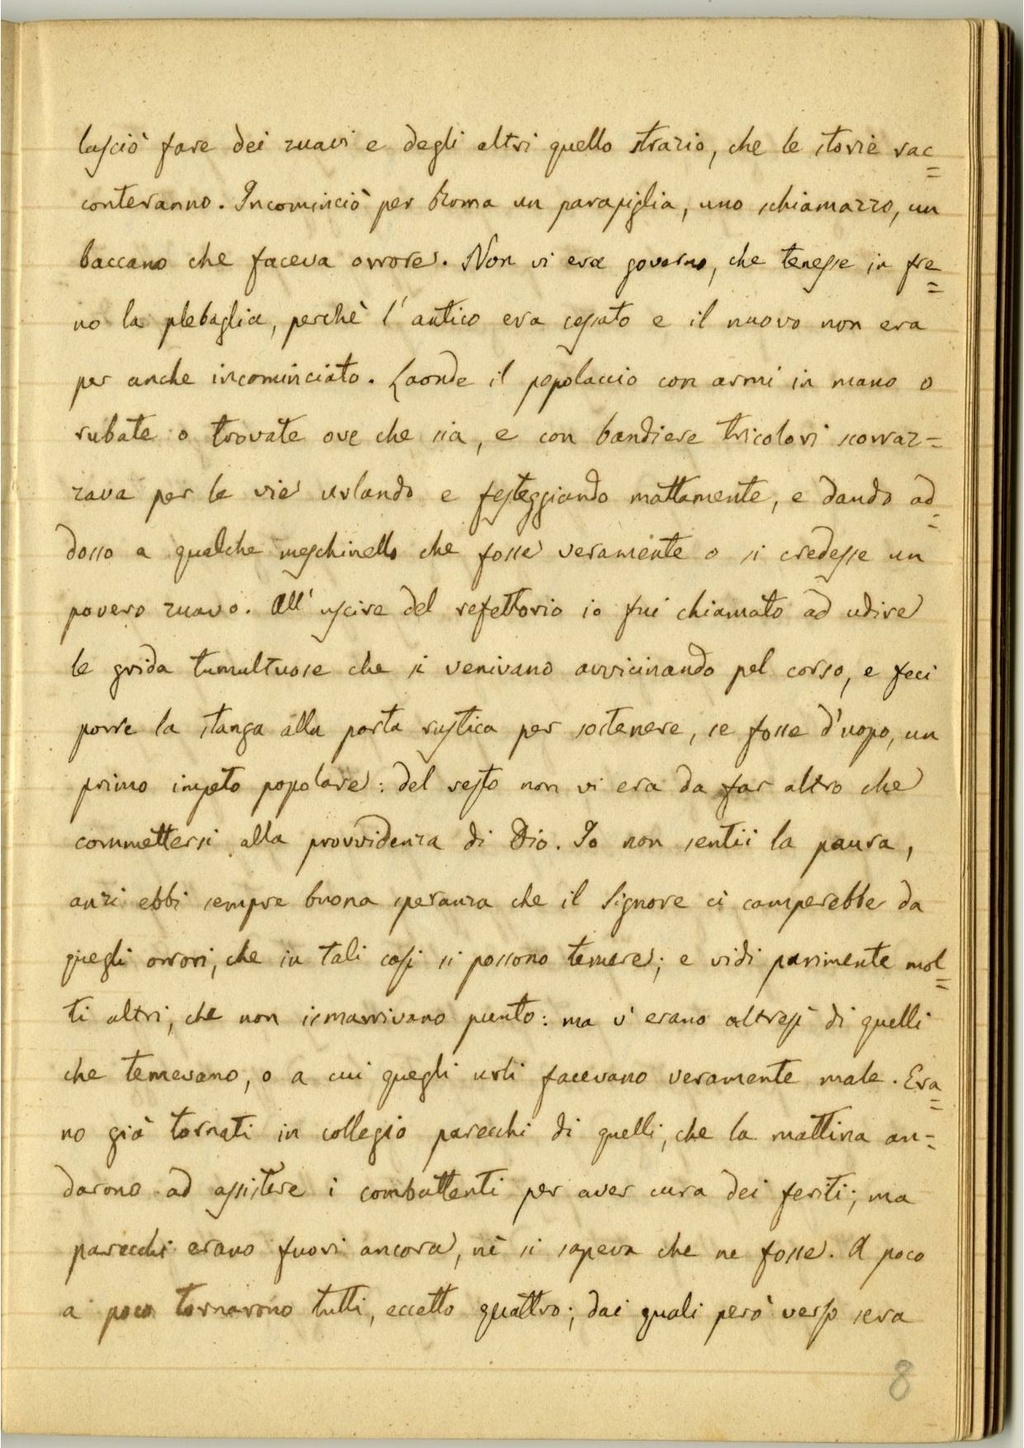 lasciò fare dei zuavi e degli altri quello strazio, che le storie rac=
conteranno. Incominciò per Roma un parapiglia, uno schiamazzo, un
baccano che faceva orrore. Non vi era governo, che tenesse in fre=
no la plebaglia, perchè l'antico era cessato e il nuovo non era
per anche incominciato. Laonde il popolaccio con armi in mano o
rubate o trovate ove che sia, e con bandiere tricolori scorraz=
zava per le vie urlando e festeggiando mattamente, e dando ad=
dosso a qualche meschinello che fosse veramente o si credesse un
povero zuavo. All'uscire del refettorio io fui chiamato ad udire
le grida tumultuose che si venivano avvicinando pel corso, e feci
porre la stanga alla porta rustica per sostenere, se fosse d'uopo, un
primo impeto popolare: del resto non vi era da far altro che
commettersi alla provvidenza di Dio. Io non sentii la paura,
anzi ebbi sempre buona speranza che il Signore ci camperebbe da
quegli orrori, che in tali casi si possono temere; e vidi parimente mol=
ti altri, che non ismarrivano punto: ma v'erano altresì di quelli
che temevano, o a cui quegli urli facevano veramente male. Era=
no già tornati in collegio parecchi di quelli, che la mattina an=
darono ad assistere i combattenti per aver cura dei feriti; ma
parecchi erano fuori ancora, nè si sapeva che ne fosse. A poco
a poco tornarono tutti, eccetto quattro; dai quali però verso sera
8